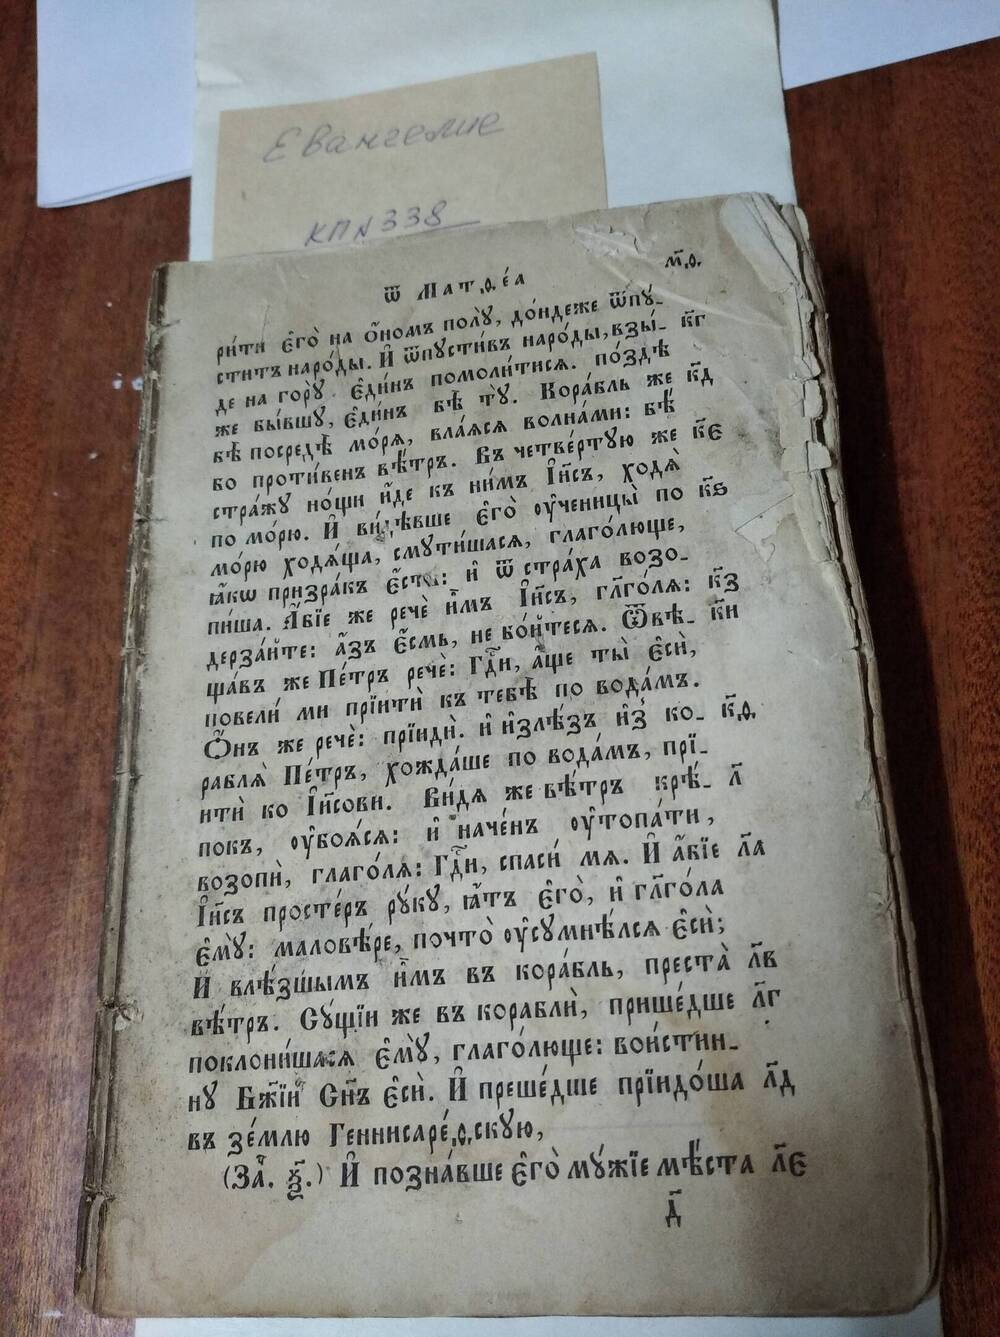 Евангелие
КП № 338
ѿ Матѳеа м҃ѳ.
ри́ти є҆го̀ на ѻ҆́номъ полꙋ̀, до́ндеже ѿпꙋ́-
ститъ наро́ды. И҆ ѿпꙋсти́въ наро́ды, взы́- к҃г
де на горꙋ̀ є҆ди́нъ помоли́тися. по́здѣ
же бы́вшꙋ, є҆ди́нъ бѣ̀ тꙋ̀. Кора́бль же к҃д
бѣ̀ посредѣ̀ мо́рѧ, влаѧ́сѧ волна́ми: бѣ́
бо проти́венъ вѣ́тръ. Въ четве́ртꙋю же к҃є
стра́жꙋ но́щи и҆́де къ ни̑мъ І҆и҃съ, ходѧ̀
по мо́рю. И҆ ви́дѣвше є҆го̀ ᲂу҆чн҃ицы̀ по к҃ѕ
мо́рю ходѧ́ща, смꙋти́шасѧ, глаго́люще,
ꙗ҆́кѡ призра́къ є҆́сть: и҆ ѿ стра́ха возо-
пи́ша. А҆́бїе же речѐ и҆̀мъ І҆и҃съ, гл҃го́лѧ: к҃з
дерза́йте: а҆́зъ є҆́смь, не бо́йтесѧ. Ѿвѣ- к҃и
ща́въ же Пе́тръ речѐ: Гдⷭ҇и, а҆́ще ты̀ є҆сѝ,
повели́ ми прїитѝ къ тебѣ̀ по вода́мъ.
Ѻ҆́нъ же речѐ: прїидѝ. и҆ и҆злѣ́зъ и҆з̾ ко- к҃ѳ.
раблѧ̀ Пе́тръ, хожда́ше по вода́мъ, прї-
итѝ ко І҆и҃сови. Ви́дѧ же вѣ́тръ крѣ́- л҃
покъ, ᲂу҆боѧ́сѧ: и҆ наче́нъ ᲂу҆топа́ти,
возопѝ, глаго́лѧ: Гдⷭ҇и, спаси́ мѧ. И҆ а҆́бїе л҃а
І҆и҃съ просте́ръ рꙋ́кꙋ, ꙗ҆́тъ є҆го̀, и҆ гл҃го́ла
є҆мꙋ̀: маловѣ́ре, почто̀ ᲂу҆сꙋмнѣ́лсѧ є҆сѝ;
И҆ влѣ́зшымъ и҆̀мъ въ кора́бль, преста̀ л҃в
вѣ́тръ. Сꙋ́щїи же въ кораблѝ, прише́дше л҃г
поклони́шасѧ є҆мꙋ̀, глаго́люще: вои́стин-
нꙋ Бж҃їй Сн҃ъ є҆сѝ. И҆ преше́дше прїидо́ша л҃д
въ зе́млю Геннисаре́ѳскꙋю,
(За҆́. ѯ҃.) И҆ позна́вше є҆го̀ мꙋ́жїе мѣ́ста л҃є
д҃